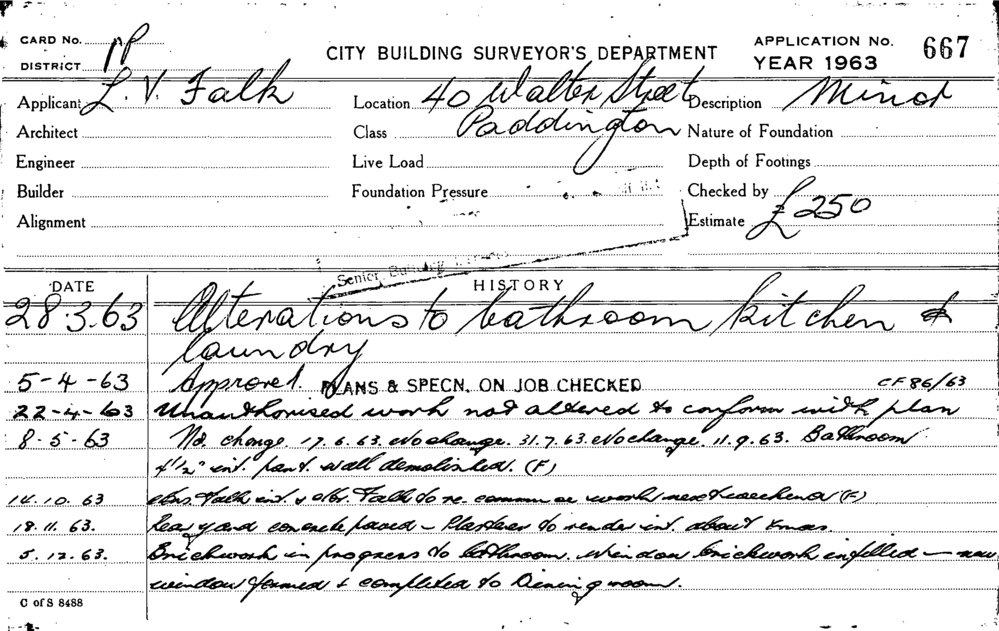 CARD No.
DISTRICT
CITY BUILDING SURVEYOR'S DEPARTMENT
APPLICATION No. 667
YEAR 1963
Applicant L. V. Falk
Location 40 Walter Street
Paddington
Description Minor
Architect
Class
Nature of Foundation
Engineer
Live Load
Depth of Footings
Builder
Foundation Pressure
Checked by
Alignment
Estimate £250
Senior Building
DATE HISTORY
28.3.63 Alterations to bathroom kitchen &
laundry
5-4-63 Approved. PLANS & SPECN. ON JOB CHECKED CF 86/63
22-4-63 Unauthorised work not altered to conform with plan
8-5-63 No change. 17.6.63. No change. 31.7.63. No change. 11.9.63. Bathroom
4½" int. part. wall demolished. (F)
14.10.63 Mrs. Falk int. & Mr. Falk to re-commence work next weekend (F)
18.11.63. Rear yard concrete paved - Plasterer to render int. about Xmas.
5.12.63. Brickwork in progress to bathroom. Window brickwork infilled - new
window formed & completed to Dining room.
C of S 8488